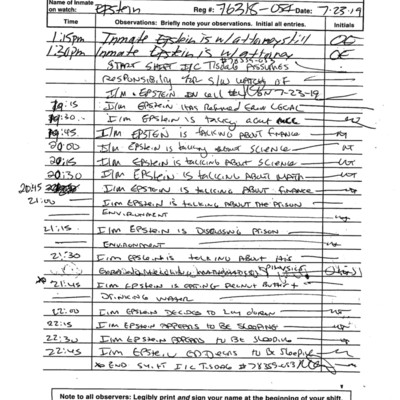 Name of Inmate
on watch: Epstein Reg # 76318-054 Date: 7-23-19
Time Observations: Briefly note your observations. Initial all entries. Initials
1:15pm Inmate Epstein is w/ attorney still OE
1:30pm Inmate Epstein is w/ attorney OE
#78355-053
START SHIFT I/C Tisdale ASSUMES
RESPONSIBILITY FOR S/W WATCH OF
I/M EPSTEIN ON 7-23-19
19:15 I/M EPSTEIN LEGAL
19:30 I/M EPSTEIN IS TALKING ABOUT MCC
19:45 I/M EPSTEIN IS TALKING ABOUT FINANCE
20:00 I/M EPSTEIN IS TALKING ABOUT SCIENCE
20:15 I/M EPSTEIN IS TALKING ABOUT SCIENCE
20:30 I/M EPSTEIN IS TALKING ABOUT MATH
20:45 I/M EPSTEIN IS TALKING ABOUT FINANCE
21:00 I/M EPSTEIN IS TALKING ABOUT THE PRISON
ENVIRONMENT
21:15 I/M EPSTEIN IS DISCUSSING PRISON
ENVIRONMENT
21:30 I/M EPSTEIN IS TALKING ABOUT HIS
21:45 I/M EPSTEIN IS EATING PEANUT BUTTER +
DRINKING WATER
22:00 I/M EPSTEIN DECIDES TO LAY DOWN
22:15 I/M EPSTEIN APPEARS TO BE SLEEPING
22:30 I/M EPSTEIN APPEARS TO BE SLEEPING
22:45 I/M EPSTEIN TO BE SLEEPING
* END SHIFT I/C Tisdale #78355-053
Note to all observers: Legibly print and sign your name at the beginning of your shift.